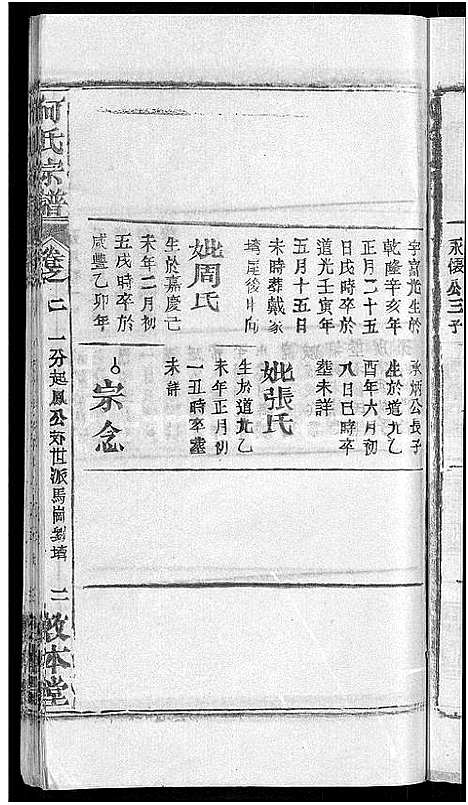 永懷公三子
字富光生於
乾隆辛亥年
正月二十五
日戌時卒於
道光壬寅年
五月十五日
未時葬戴家
塆尾後山向
妣周氏
生於嘉慶丁
未年二月初
五戌時卒於
咸豐乙卯年
永炳公長子
生於道光乙
酉年六月初
八日巳時卒
塟未詳
妣張氏
生於道光乙
未年正月初
一丑時卒塟
未詳
宗念
何氏宗譜
卷之二
一分起鳳公
世派馬崗劉
二
敦本堂